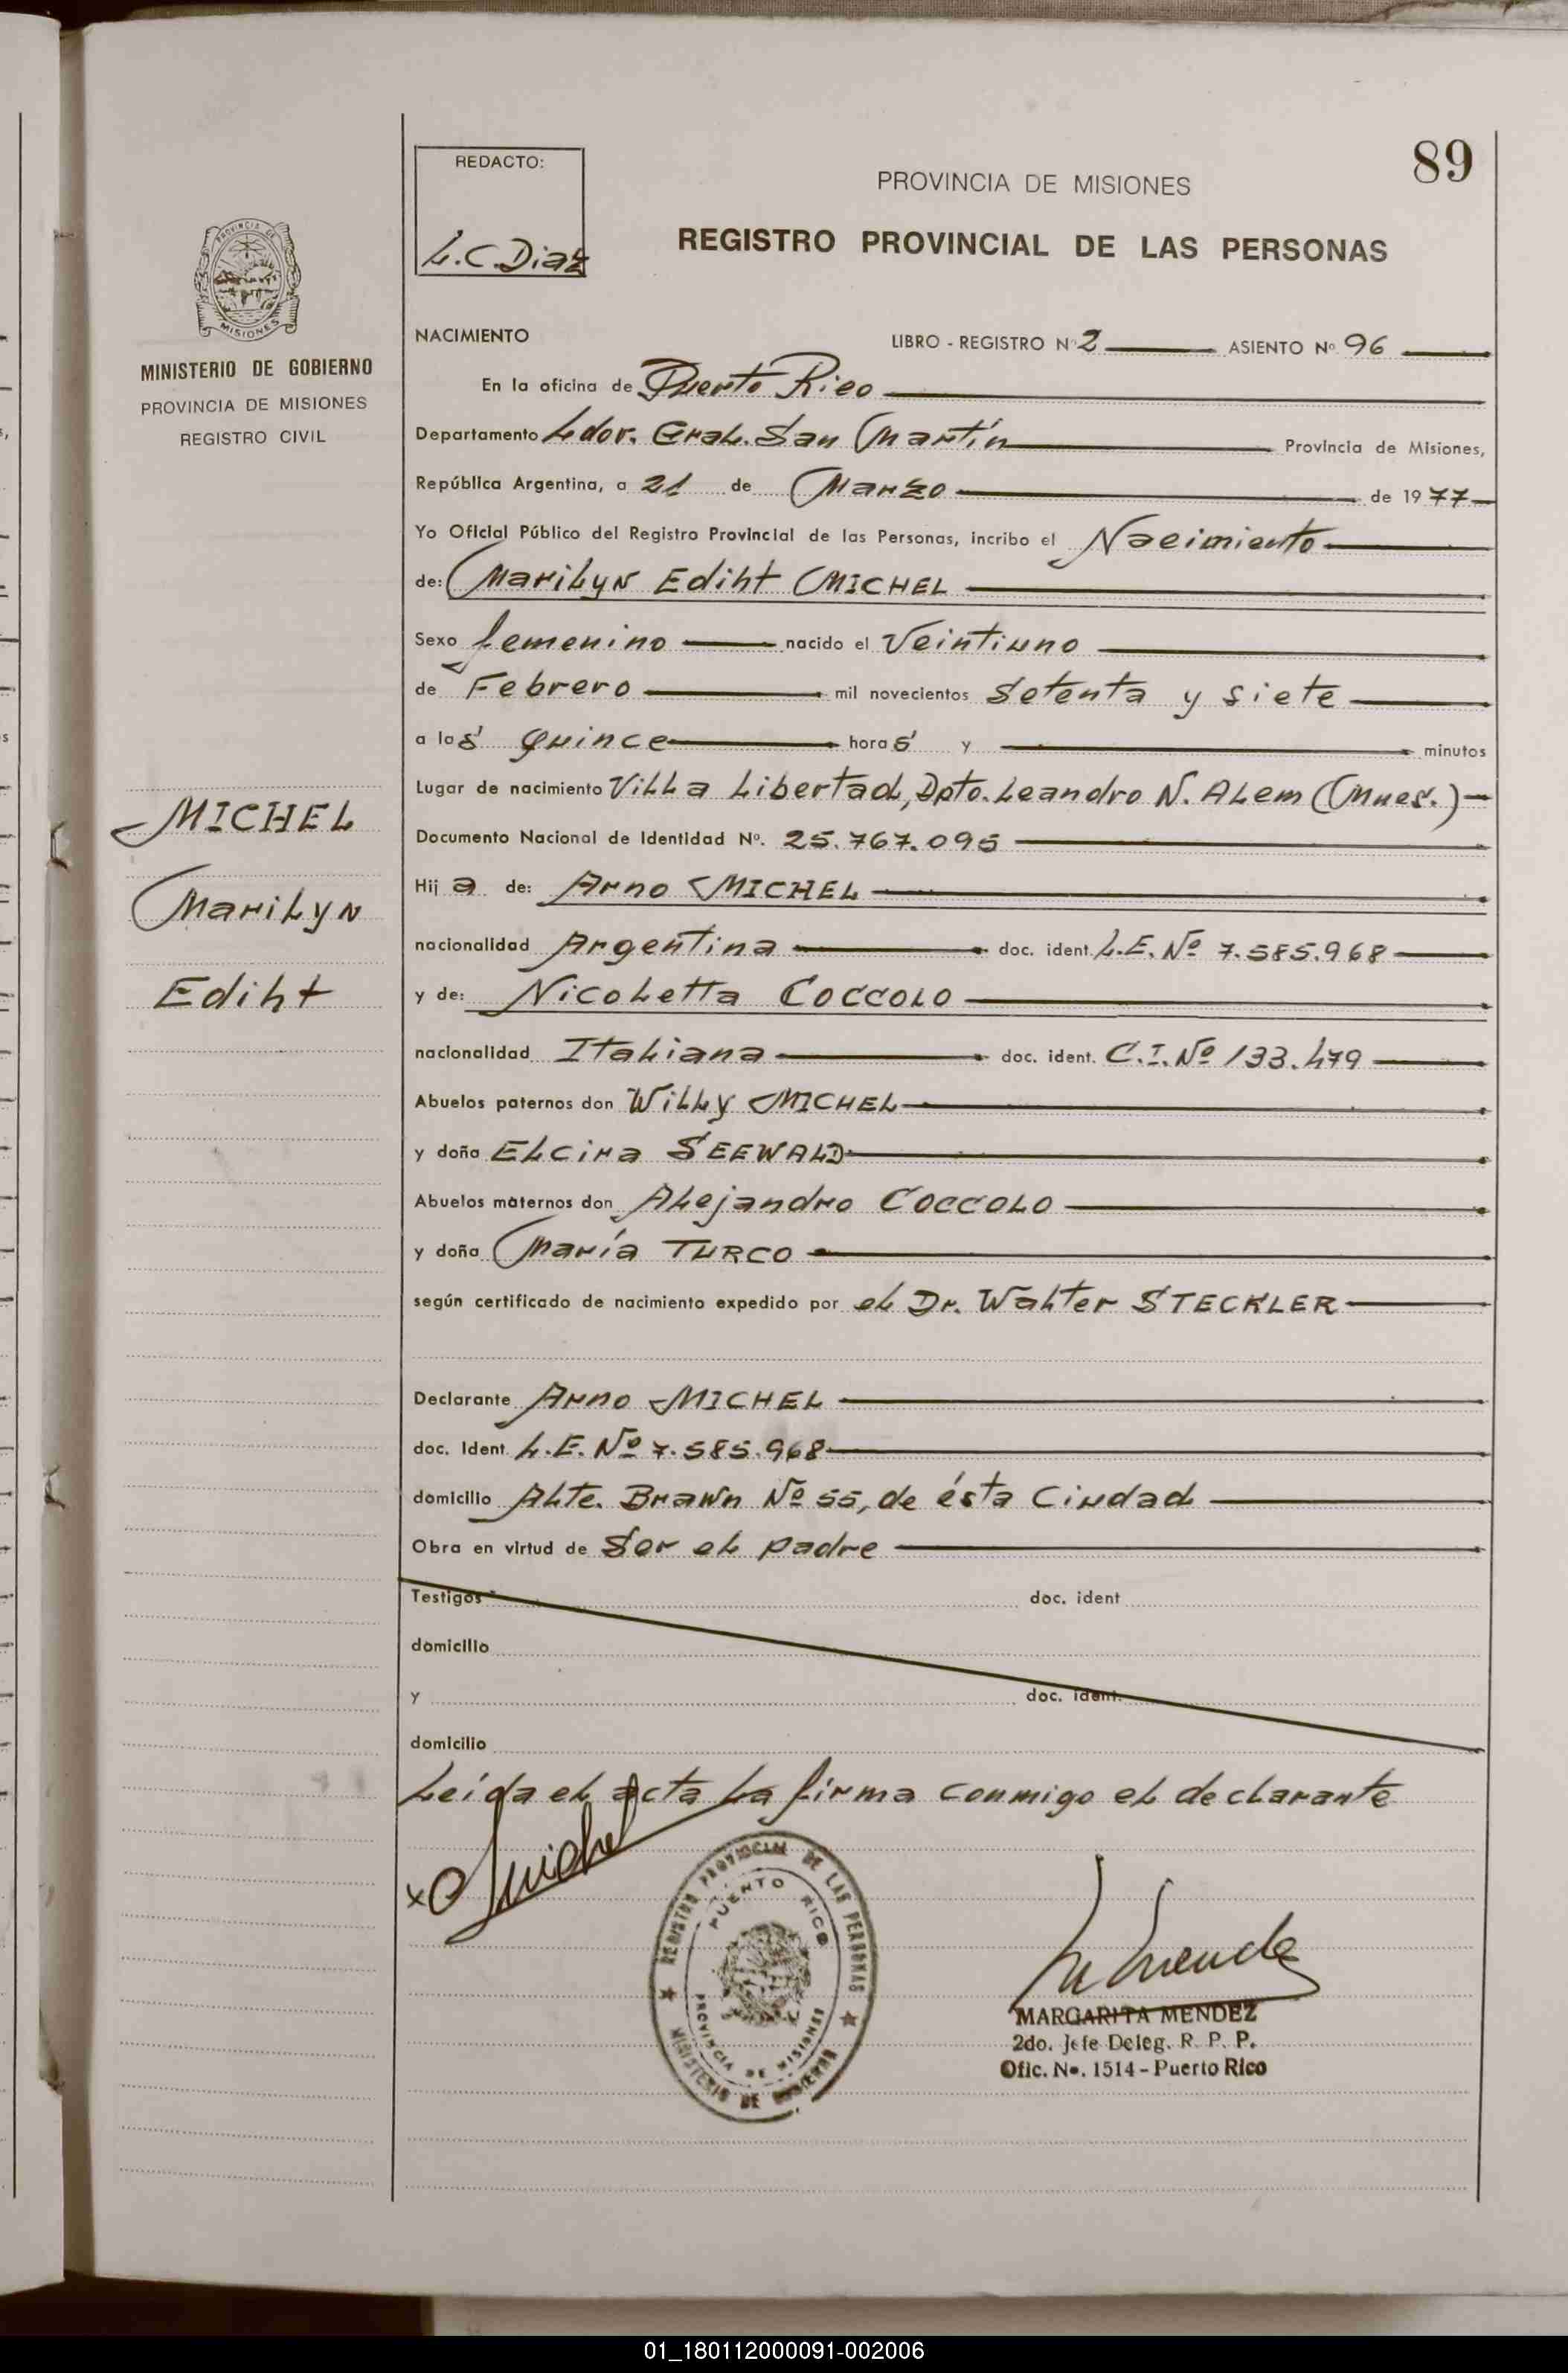 89
REDACTO:
L.C.Diaz
PROVINCIA DE MISIONES
REGISTRO PROVINCIAL DE LAS PERSONAS
PROVINCIA DE
MISIONES
MINISTERIO DE GOBIERNO
PROVINCIA DE MISIONES
REGISTRO CIVIL
MICHEL
Marilyn
Ediht
NACIMIENTO LIBRO - REGISTRO Nº 2 ASIENTO Nº 96
En la oficina de Puerto Rico
Departamento Ldor. Gral. San Martín Provincia de Misiones,
República Argentina, a 21 de Marzo de 1977
Yo Oficial Público del Registro Provincial de las Personas, incribo el Nacimiento
de: Marilyn Ediht MICHEL
Sexo femenino nacido el Veintiuno
de Febrero mil novecientos Setenta y siete
a las quince horas y minutos
Lugar de nacimiento Villa Libertad, Dpto. Leandro N. Alem (Mnes.)
Documento Nacional de Identidad Nº. 25.767.095
Hija de: Arno MICHEL
nacionalidad Argentina doc. ident. L.E. Nº 7.585.968
y de: Nicoletta COCCOLO
nacionalidad Italiana doc. ident. C.I. Nº 133.479
Abuelos paternos don Willy MICHEL
y doña Elcira SEEWALD
Abuelos maternos don Alejandro COCCOLO
y doña María TURCO
según certificado de nacimiento expedido por el Dr. Walter STECKLER
Declarante Arno MICHEL
doc. Ident. L.E. Nº 7.585.968
domicilio Alte. Brawn Nº 55, de ésta Ciudad
Obra en virtud de Ser el padre
Testigos doc. ident
domicilio
y doc. ident.
domicilio
Leída el acta la firma conmigo el declarante
REGISTRO PROVINCIAL DE LAS PERSONAS
PUERTO RICO
PROVINCIA DE MISIONES
MINISTERIO DE GOBIERNO
MARGARITA MENDEZ
2do. Jefe Deleg. R. P. P.
Ofic. Nº. 1514 - Puerto Rico
01_180112000091-002006